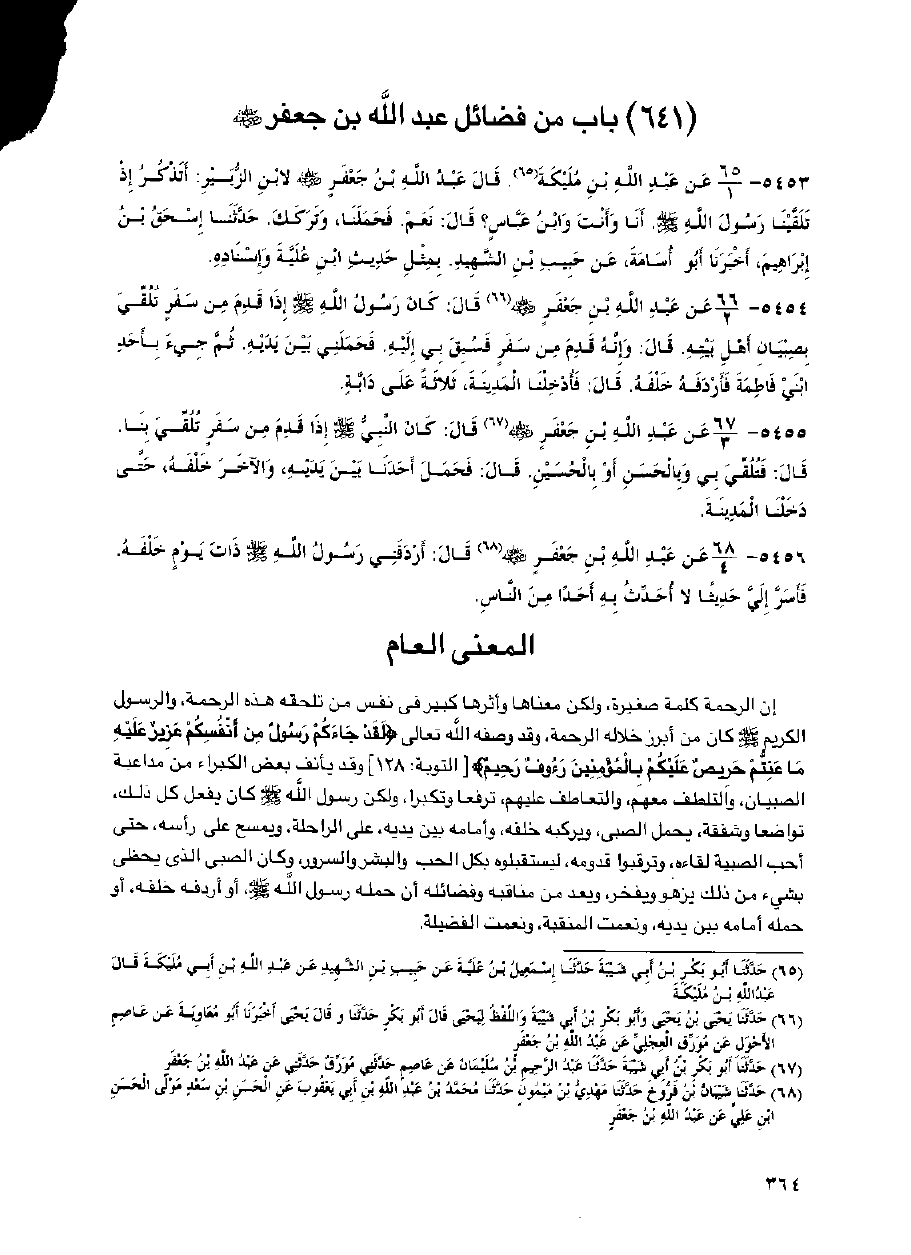 (٦٤١) باب من فضائل عبد الله بن جعفر ﷺ
٥٤٥٣- ٦٥/١ عَن عَبْدِ اللَّهِ بْنِ مُلَيْكَةَ(٦٥). قَالَ عَبْدُ اللَّهِ بْنُ جَعْفَرٍ ﷺ لابْنِ الزُّبَيْرِ: أَتَذْكُرُ إِذْ
تَلَقَّيْنَا رَسُولَ اللَّهِ ﷺ. أَنَا وَأَنْتَ وَابْنُ عَبَّاسٍ؟ قَالَ: نَعَمْ. فَحَمَلَنَا، وَتَرَكَكَ. حَدَّثَنَا إِسْحَقُ بْنُ
إِبْرَاهِيمَ، أَخْبَرَنَا أَبُو أُسَامَةَ، عَن حَبِيبِ بْنِ الشَّهِيدِ. بِمِثْلِ حَدِيثِ ابْنِ عُلَيَّةَ وَإِسْنَادِهِ.
٥٤٥٤- ٦٦/٢ عَن عَبْدِ اللَّهِ بْنِ جَعْفَرٍ ﷺ(٦٦) قَالَ: كَانَ رَسُولُ اللَّهِ ﷺ إِذَا قَدِمَ مِن سَفَرٍ تُلُقِّيَ
بِصِبْيَانِ أَهْلِ بَيْتِهِ. قَالَ: وَإِنَّهُ قَدِمَ مِن سَفَرٍ فَسُبِقَ بِي إِلَيْهِ. فَحَمَلَنِي بَيْنَ يَدَيْهِ. ثُمَّ جِيءَ بِأَحَدِ
ابْنَيْ فَاطِمَةَ فَأَرْدَفَهُ خَلْفَهُ. قَالَ: فَأُدْخِلْنَا الْمَدِينَةَ، ثَلاثَةً عَلَى دَابَّةٍ.
٥٤٥٥- ٦٧/٣ عَن عَبْدِ اللَّهِ بْنِ جَعْفَرٍ ﷺ(٦٧) قَالَ: كَانَ النَّبِيُّ ﷺ إِذَا قَدِمَ مِن سَفَرٍ تُلُقِّيَ بِنَا.
قَالَ: فَتُلُقِّيَ بِي وَبِالْحَسَنِ أَوْ بِالْحُسَيْنِ. قَالَ: فَحَمَلَ أَحَدَنَا بَيْنَ يَدَيْهِ، وَالآخَرَ خَلْفَهُ، حَتَّى
دَخَلْنَا الْمَدِينَةَ.
٥٤٥٦- ٦٨/٤ عَن عَبْدِ اللَّهِ بْنِ جَعْفَرٍ ﷺ(٦٨) قَالَ: أَرْدَفَنِي رَسُولُ اللَّهِ ﷺ ذَاتَ يَوْمٍ خَلْفَهُ.
فَأَسَرَّ إِلَيَّ حَدِيثًا لا أُحَدِّثُ بِهِ أَحَدًا مِنَ النَّاسِ.
المعنى العام
إن الرحمة كلمة صغيرة، ولكن معناها وأثرها كبير فى نفس من تلحقه هذه الرحمة، والرسول
الكريم ﷺ كان من أبرز خلاله الرحمة، وقد وصفه الله تعالى ﴿لَقَدْ جَاءَكُمْ رَسُولٌ مِن أَنْفُسِكُمْ عَزِيزٌ عَلَيْهِ
مَا عَنِتُّمْ حَرِيصٌ عَلَيْكُمْ بِالْمُؤْمِنِينَ رَءُوفٌ رَحِيمٌ﴾ [التوبة: ١٢٨] وقد يأنف بعض الكبراء من مداعبة
الصبيان، والتلطف معهم، والتعاطف عليهم، ترفعا وتكبرا، ولكن رسول الله ﷺ كان يفعل كل ذلك،
تواضعا وشفقة، يحمل الصبى، ويركبه خلفه، وأمامه بين يديه، على الراحلة، ويمسح على رأسه، حتى
أحب الصبية لقاءه، وترقبوا قدومه، ليستقبلوه بكل الحب والبشر والسرور، وكان الصبى الذى يحظى
بشىء من ذلك يزهو ويفخر، ويعد من مناقبه وفضائله أن حمله رسول الله ﷺ، أو أردفه خلفه، أو
حمله أمامه بين يديه، ونعمت المنقبة، ونعمت الفضيلة.
(٦٥) حَدَّثَنَا أَبُو بَكْرِ بْنُ أَبِي شَيْبَةَ حَدَّثَنَا إِسْمَعِيلُ بْنُ عُلَيَّةَ عَن حَبِيبِ بْنِ الشَّهِيدِ عَن عَبْدِ اللَّهِ بْنِ أَبِي مُلَيْكَةَ قَالَ
عَبْدُاللَّهِ بْنُ مُلَيْكَةَ
(٦٦) حَدَّثَنَا يَحْيَى بْنُ يَحْيَى وَأَبُو بَكْرِ بْنُ أَبِي شَيْبَةَ وَاللَّفْظُ لِيَحْيَى قَالَ أَبُو بَكْرٍ حَدَّثَنَا و قَالَ يَحْيَى أَخْبَرَنَا أَبُو مُعَاوِيَةَ عَن عَاصِمٍ
الأَحْوَلِ عَن مُوَرِّقٍ الْعِجْلِيِّ عَن عَبْدِ اللَّهِ بْنُ جَعْفَرٍ
(٦٧) حَدَّثَنَا أَبُو بَكْرِ بْنُ أَبِي شَيْبَةَ حَدَّثَنَا عَبْدُ الرَّحِيمِ بْنُ سُلَيْمَانَ عَن عَاصِمٍ حَدَّثَنِي مُوَرِّقٌ حَدَّثَنِي عَن عَبْدُ اللَّهِ بْنُ جَعْفَرٍ
(٦٨) حَدَّثَنَا شَيْبَانُ بْنُ فَرُّوخَ حَدَّثَنَا مَهْدِيُّ بْنُ مَيْمُونٍ حَدَّثَنَا مُحَمَّدُ بْنُ عَبْدِ اللَّهِ بْنِ أَبِي يَعْقُوبَ عَنِ الْحَسَنِ بْنِ سَعْدٍ مَوْلَى الْحَسَنِ
ابْنِ عَلِيٍّ عَن عَبْدُ اللَّهِ بْنُ جَعْفَرٍ
٣٦٤